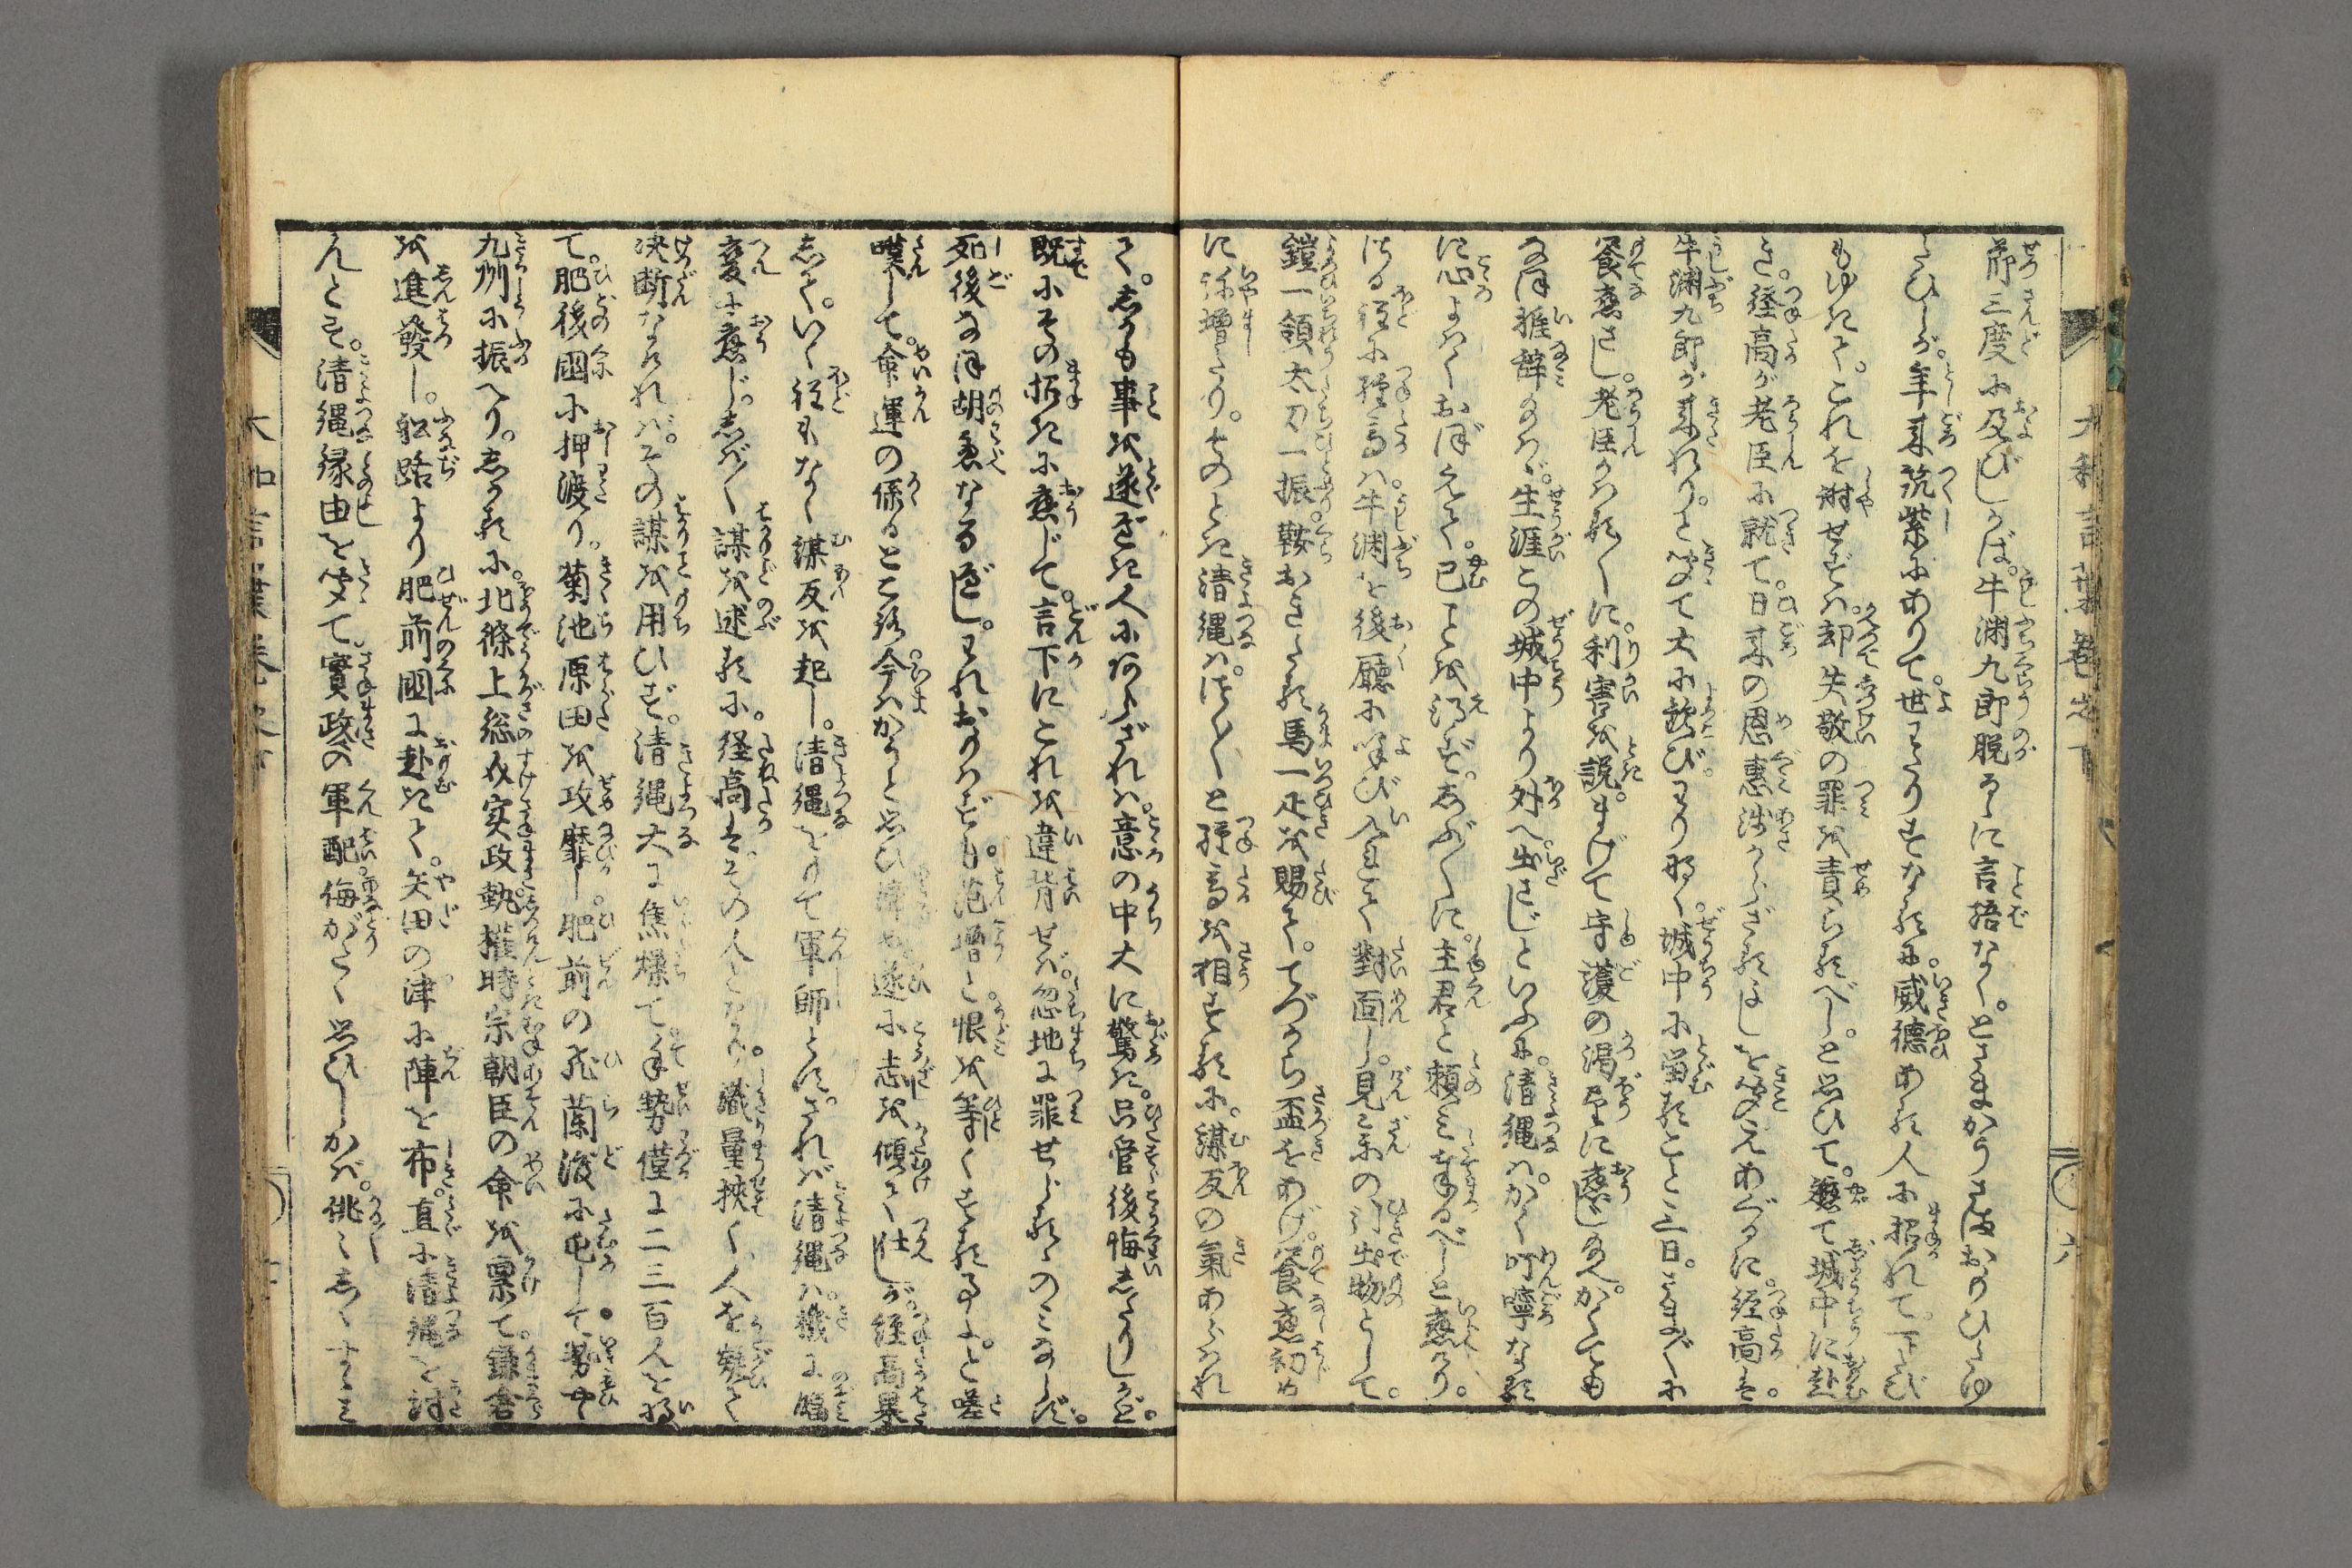 節三度に及びしかば。牛渕九郎脱るゝに言語なく。とさまかうさまおもひたゆ
たひしが。年来筑紫にありて。世わたりすなるに。威徳ある人に招れて。下たび
もゆきて。これを謝せずは。却失敬の罪を責らるべし。と思ひて。
き。経高が老臣に就て。日来の恩恵浅からざるよしを聞えあぐるに。経高は。
牛渕九郎が来れり。と聞て大に歓び。城中に留ること三日。さま〴〵に
餐應さし。老臣かはる〴〵に。利害を説。まげて守護の渇望に應じ給へ。かくても
なほ推辞給はゞ。生涯この城中より外へ出さじといふに。清縄は。かく叮嚀なる
に心よはくおぼえて。已ことを得ず。主君と頼み奉るべしと應けり。
ける程に経高は。牛渕を後廳によび入れて對面し。見参の引出物として。
鎧一領太刀一振。鞍おきたる馬一疋を賜て。てづから盃をあげ。餐應初め
に弥増たり。そのとき清縄は。つく〴〵と経高を相するに。謀反の氣あらはれ
て。しかも事を遂べき人にあらざれば。意の中大に驚き。只管後悔したりしかど。
既にその招きに應じて。言下にこれを違背せば。忽地に罪せらるゝのみならず。
死後なほ胡慮なるべし。われおもはずも。范増と恨を等くするよ。と嗟
嘆して。命運の係るところ。今はかうと思ひ諦め。遂に志を傾て仕しが。経高果
して。いく程もなく謀反を起し。清縄をもて軍師とす。されば清縄は。機に臨
變に應じ。しば〳〵謀を述るに。経高はその人となり。職量挾く、人を疑て
決断なければ。その謀を用ひず。清縄大に焦燥て。手勢僅に二三百人を将
て。肥後國に押渡り。菊池原田を攻靡し。肥前の飛蘭渡に屯して。勢ひ
九州に振へり。しかるに。北條上総介実政。執權時宗朝臣の命を稟て。鎌倉
を進發し。舩路より肥前國に赴きて。矢田の津に陣を布。直に清縄を討
んとす。清縄縁由を聞て。實政の軍配。侮がたく思ひしかば。